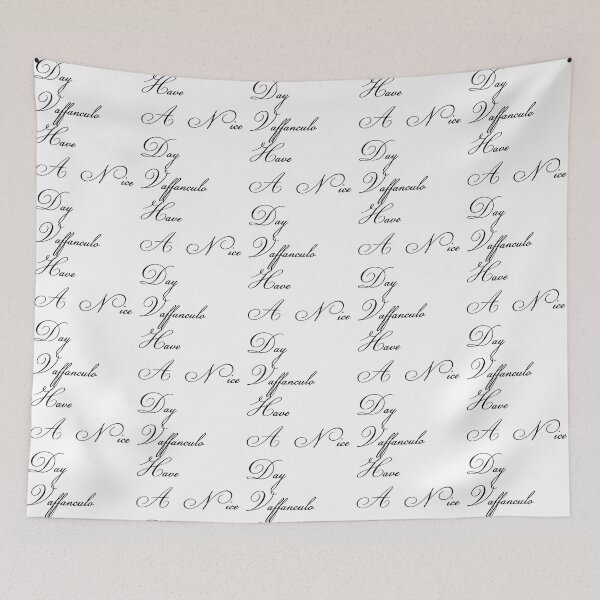 Day
Vaffanculo
Have
A Nice
Day
Vaffanculo
Have
A Nice
Day
Vaffanculo
Have
A Nice
Day
Vaffanculo
Have
A Nice
Day
Vaffanculo
Have
A Nice
Day
Vaffanculo
Have
A Nice
Day
Vaffanculo
Have
A Nice
Day
Vaffanculo
Have
A Nice
Day
Vaffanculo
Have
A Nice
Day
Vaffanculo
Have
A Nice
Day
Vaffanculo
Have
A Nice
Day
Vaffanculo
Have
A Nice
Day
Vaffanculo
Have
A Nice
Day
Vaffanculo
Have
A Nice
Day
Vaffanculo
Have
A Nice
Day
Vaffanculo
Have
A Nice
Day
Vaffanculo
Have
A Nice
Day
Vaffanculo